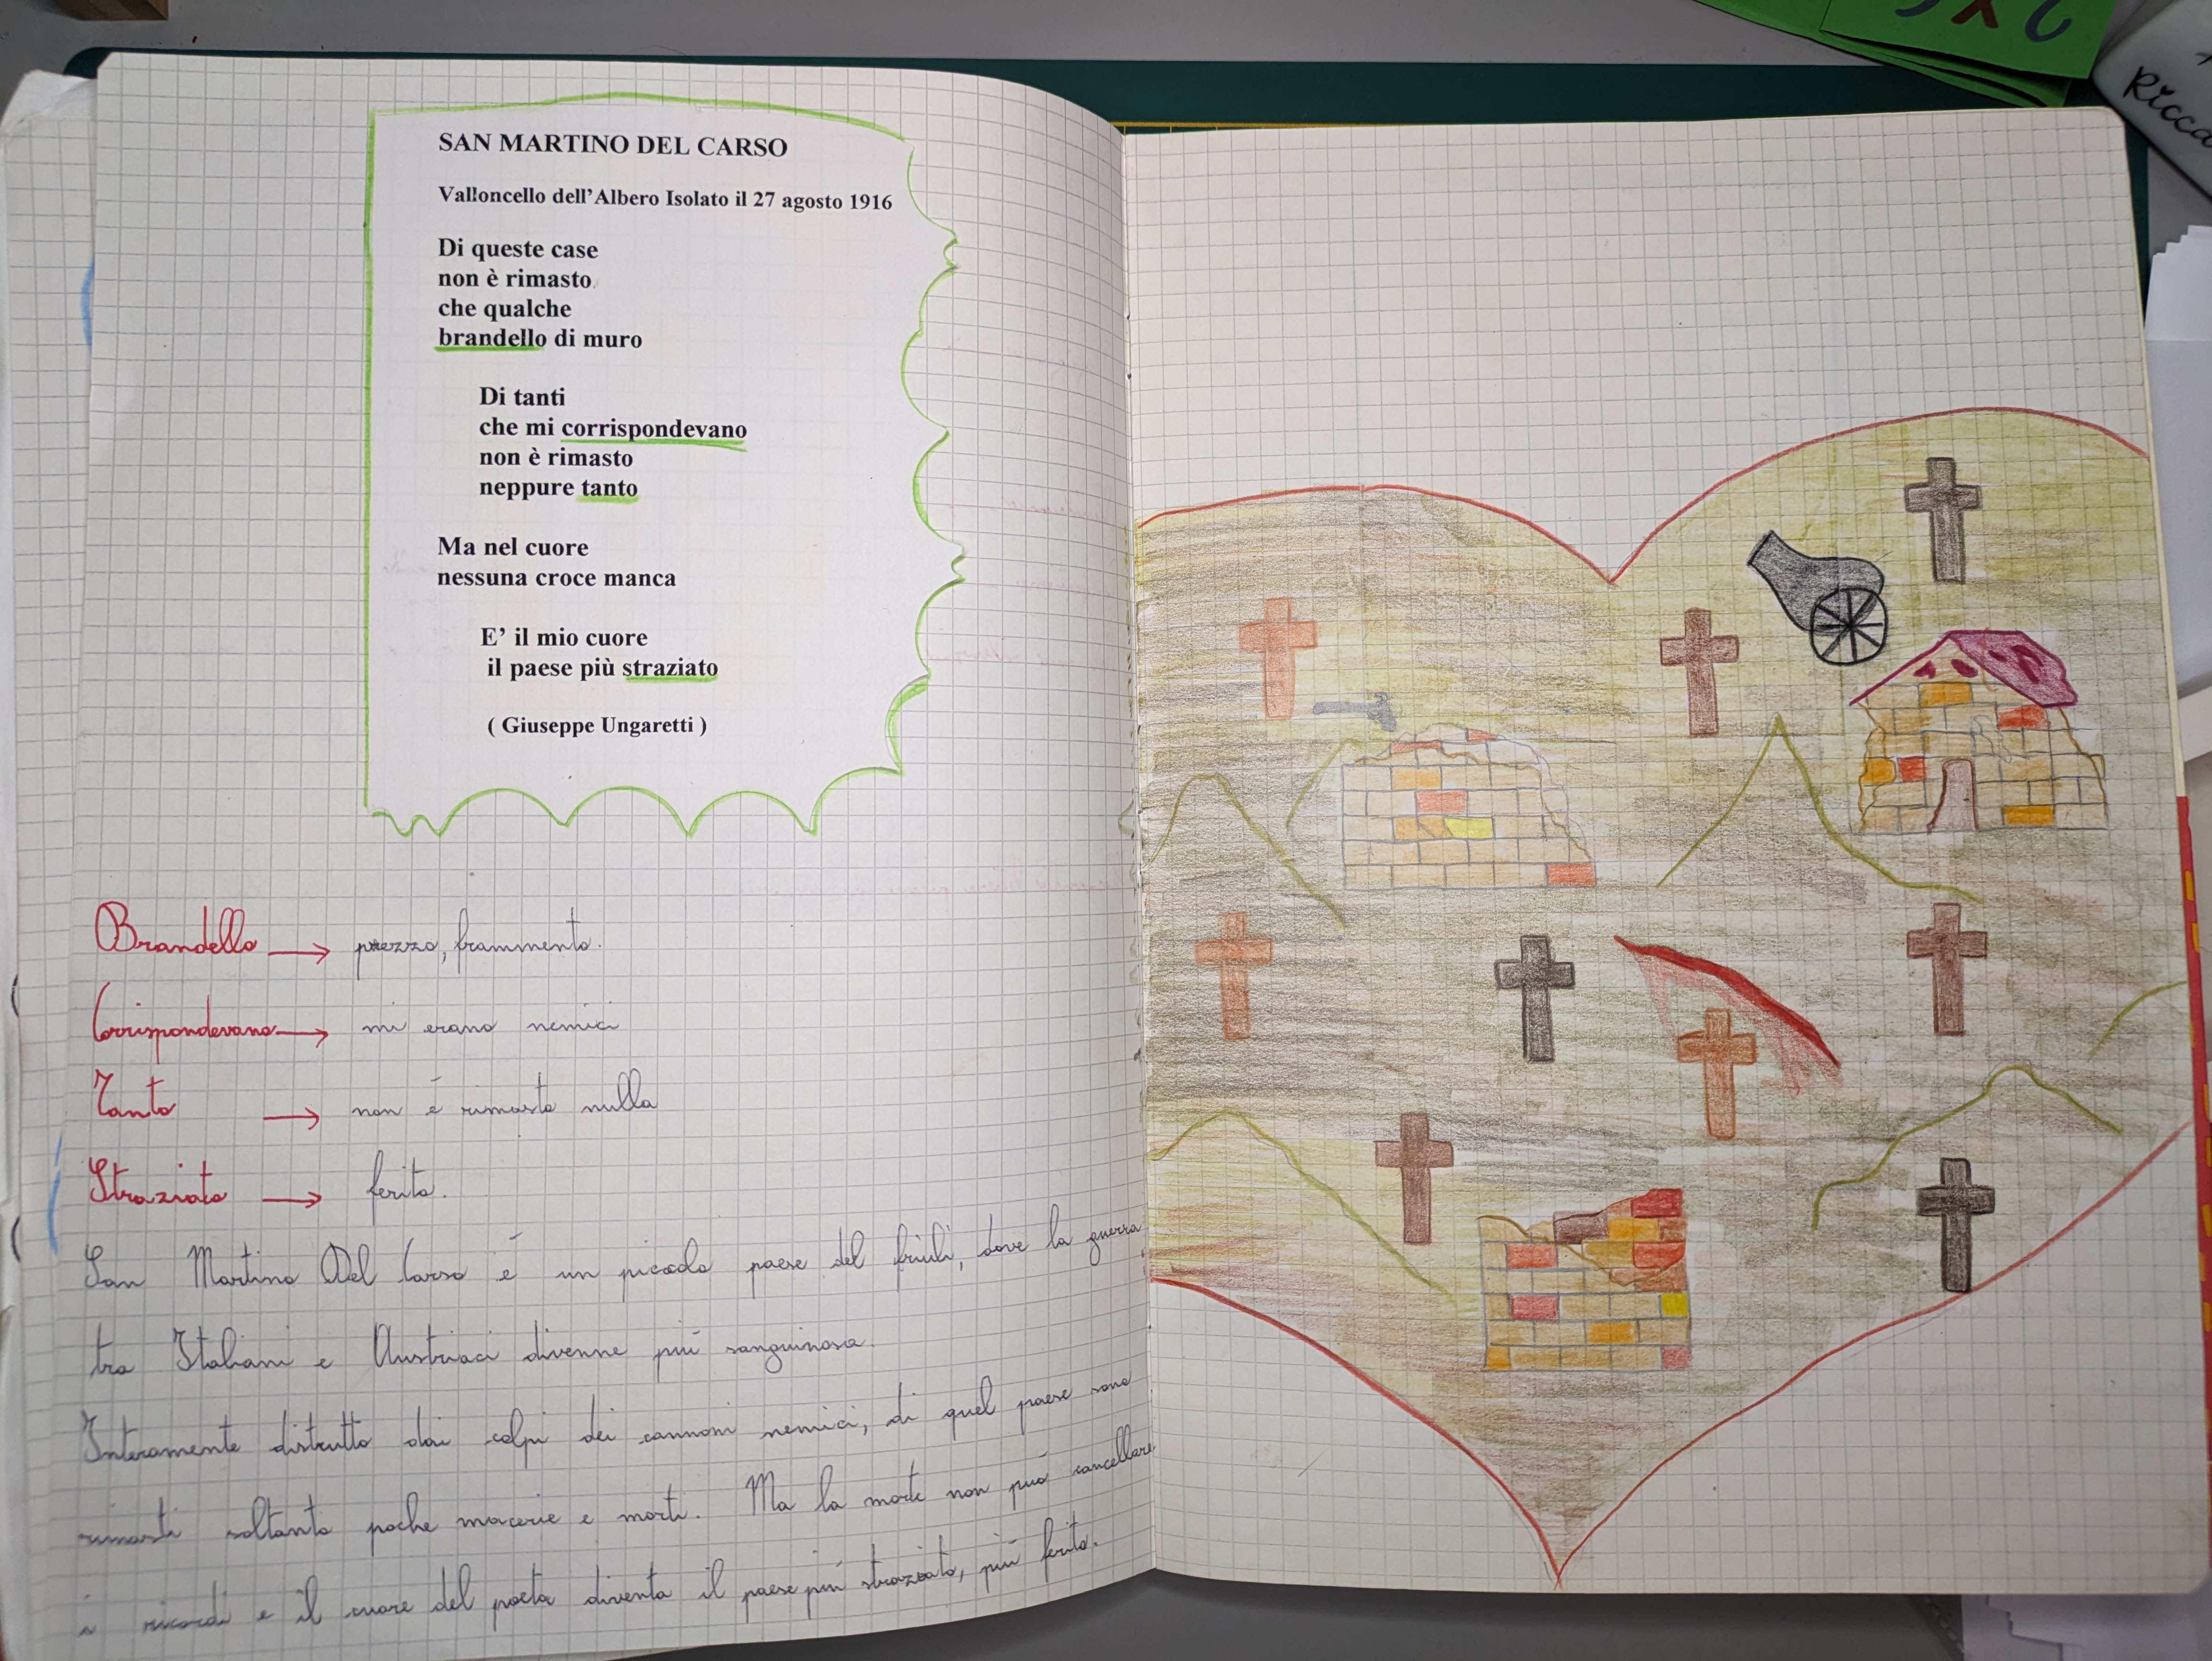 SAN MARTINO DEL CARSO
Valloncello dell'Albero Isolato il 27 agosto 1916
Di queste case
non è rimasto
che qualche
brandello di muro
Di tanti
che mi corrispondevano
non è rimasto
neppure tanto
Ma nel cuore
nessuna croce manca
E' il mio cuore
il paese più straziato
( Giuseppe Ungaretti )
Brandello → pezzo, frammento.
Corrispondevano → mi erano nemici
Tanto → non é rimasto nulla
Straziato → ferito.
San Martino Del Carso é un piccolo paese del friuli, dove la guerra
tra Italiani e Austriaci divenne piú sanguinosa.
Interamente distrutto dai colpi dei cannoni nemici, di quel paese sono
rimasti soltanto poche macerie e morti. Ma la morte non puó cancellare
i ricordi e il cuore del poeta diventa il paese piú straziato, piú ferito.
Ricca